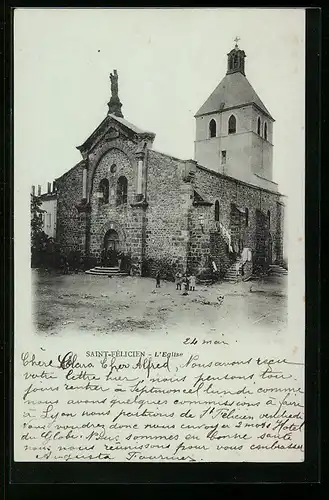 SAINT-FÉLICIEN — L'Eglise
24 mai
Chère Clara Cher Alfred, Nous avons reçu
votre lettre hier, nous pensons tou-
jours rentrer à Septmoncel lundi comme
nous avons quelques commissions à faire
à Lyon nous partirons de St Félicien vendredi
Vous voudrez donc nous envoyer 2 mots Hotel
du Globe. Nous sommes en bonne santé
nous nous réunissons pour vous embrasser
Augusta